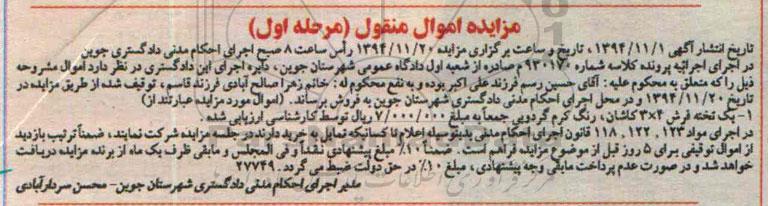 مزایده اموال منقول (مرحله اول)
تاریخ انتشار آگهی ۱۳۹۴/۱۱/۱ ، تاریخ و ساعت برگزاری مزایده ۱۳۹۴/۱۱/۲۰ رأس ساعت ۸ صبح اجرای احکام مدنی دادگستری جوین
در اجرای اجرائیه پرونده کلاسه شماره ۹۳۰۱۷۰ م صادره از شعبه اول دادگاه عمومی شهرستان جوین ، دایره اجرای این دادگستری در نظر دارد اموال مشروحه
ذیل را که متعلق به محکوم علیه : آقای حسین رسم فرزند علی اکبر بوده و به نفع محکوم له : خانم زهرا صالح آبادی فرزند قاسم ، توقیف شده از طریق مزایده در
تاریخ ۱۳۹۴/۱۱/۲۰ و در محل اجرای احکام مدنی دادگستری شهرستان جوین به فروش برساند . (اموال مورد مزایده عبارتند از)
۱- یک تخته فرش ۴×۳ کاشان ، رنگ کرم گردویی جمعاً به مبلغ ۷/۰۰۰/۰۰۰ ریال توسط کارشناسی ارزیابی شده .
در اجرای مواد ۱۲۳ ، ۱۲۲ ، ۱۱۸ قانون اجرای احکام مدنی بدینوسیله اعلام تا کسانیکه تمایل به خرید دارند در جلسه مزایده شرکت نمایند ، ضمناً ترتیب بازدید
از اموال توقیفی برای ۵ روز قبل از موضوع مزایده فراهم است . ضمناً ۱۰٪ مبلغ پیشنهادی نقداً و فی المجلس و مابقی ظرف یک ماه از برنده مزایده دریافت
خواهد شد و در صورت عدم پرداخت مابقی وجه پیشنهادی ، مبلغ ۱۰٪ در حق دولت ضبط می گردد . ۲۷۷۴۹
مدیر اجرای احکام مدنی دادگستری شهرستان جوین- محسن سردارآبادی